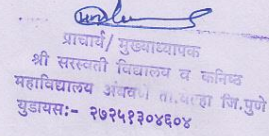 प्राचार्य/ मुख्याध्यापक
श्री सरस्वती विद्यालय व कनिष्ठ
महाविद्यालय अंबवणे ता.वेल्हा जि.पुणे
युडायस:- २७२५१३०४६०४